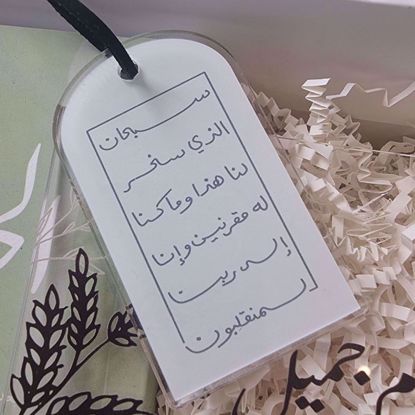 سبحان
الذي سخر
لنا هذا وما كنا
له مقرنين وإنا
إلى ربنا
لمنقلبون
جميل